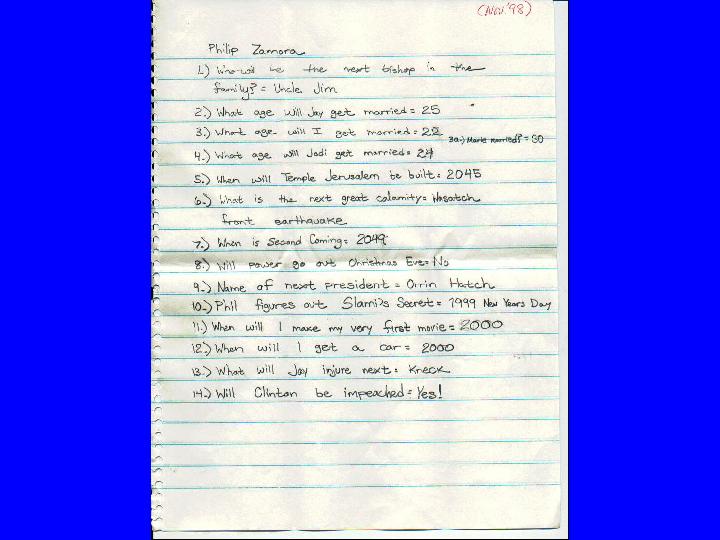 (Nov. '98)
Philip Zamora
1.) Who will be the next bishop in the
family? = Uncle Jim
2.) What age will Jay get married = 25
3.) What age will I get married = 22 3a.) Marie married? = 30
4.) What age will Jodi get married = 24
5.) When will Temple Jerusalem be built = 2045
6.) What is the next great calamity = Wasatch
front earthquake
7.) When is Second Coming = 2049
8.) Will power go out Christmas Eve = No
9.) Name of next president = Orrin Hatch
10.) Phil figures out Slami's Secret = 1999 New Years Day
11.) When will I make my very first movie = 2000
12.) When will I get a car = 2000
13.) What will Jay injure next = Kneck
14.) Will Clinton be impeached = Yes!